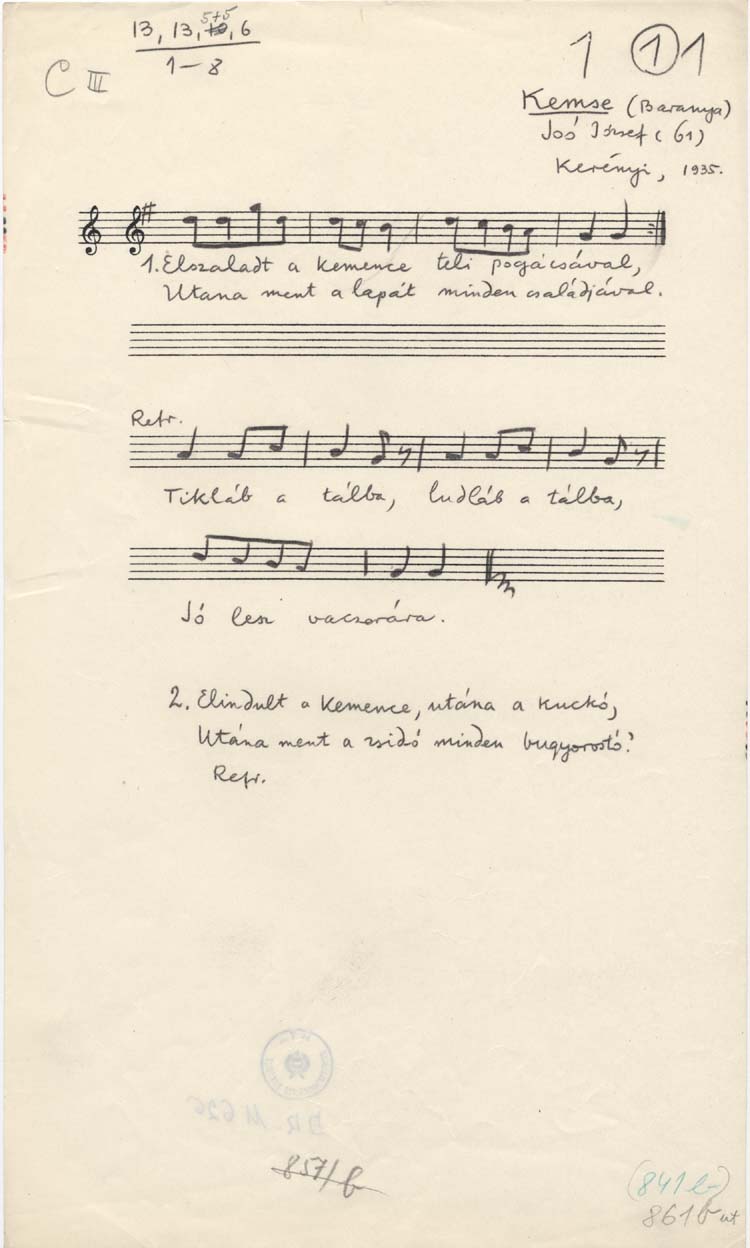 13, 13, 5+5, 6
1-8
C III
1 1 1
Kemse (Baranya)
Joó József (61)
Kerényi, 1935.
1. Elszaladt a kemence teli pogácsával,
Utana ment a lapát minden családjával.
Refr.
Tikláb a tálba, ludláb a tálba,
Jó lesz vaczorára.
2. Elindult a kemence, utána a kuckó,
Utána ment a zsidó minden bugyorostó?
Refr.
857/b
(841 b)
861 b